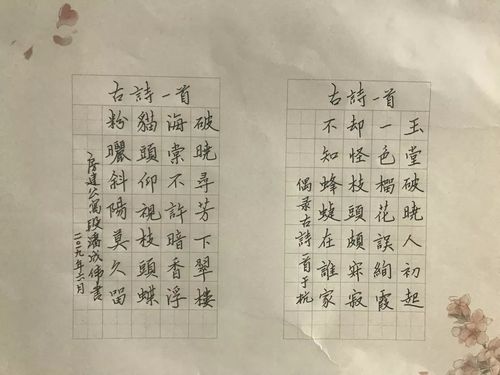 古詩一首
玉堂破曉人初起
一色榴花誤絢霞
却怪枝頭頗寂
不知蜂蝶在誰家
偶录古詩一首于杭
古詩一首
破曉尋芳下翠樓
海棠不許暗香浮
貓頭仰視枝頭蝶
粉曬斜陽莫久留
潘成偉書
二〇一九年六月